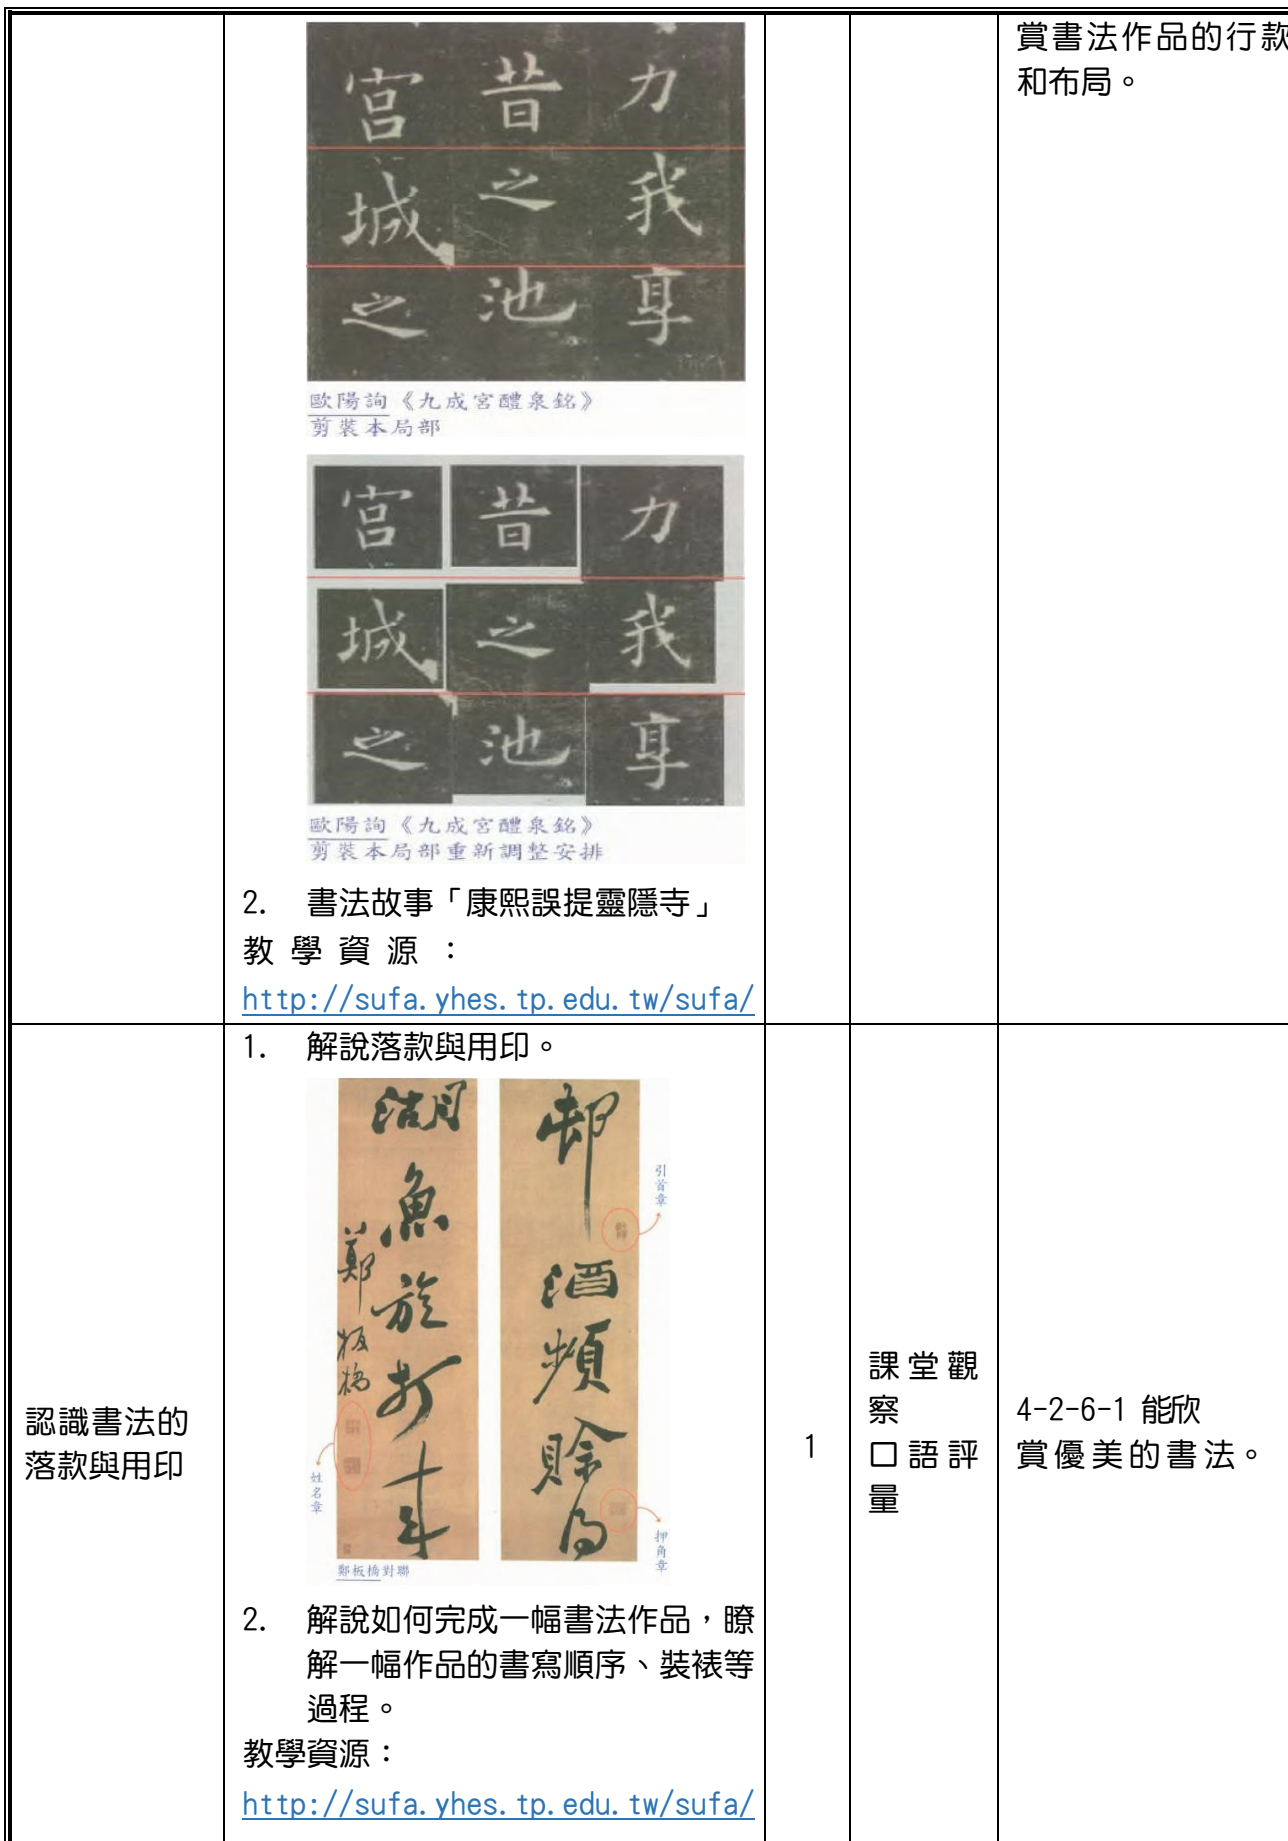 力我享
昔之池
宮城之
歐陽詢《九成宮醴泉銘》
剪裝本局部
力我享
昔之池
宮城之
歐陽詢《九成宮醴泉銘》
剪裝本局部重新調整安排
2. 書法故事「康熙誤提靈隱寺」
教學資源：
http://sufa.yhes.tp.edu.tw/sufa/
賞書法作品的行款
和布局。
認識書法的
落款與用印
1. 解說落款與用印。
邨酒頻賒
引首章
押角章
湖魚旋打
鄭板橋
姓名章
鄭板橋對聯
2. 解說如何完成一幅書法作品，瞭
解一幅作品的書寫順序、裝裱等
過程。
教學資源：
http://sufa.yhes.tp.edu.tw/sufa/
1
課堂觀
察
口語評
量
4-2-6-1 能欣
賞優美的書法。